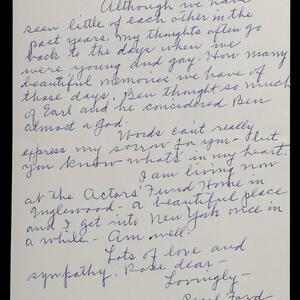 Although we have
seen little of each other in the
past years, my thoughts often go
back to the days when we
were young and gay. How many
beautiful memories we have of
those days. Ben thought so much
of Earl and he considered Ben
almost a God.
Words can't really
express my sorrow for you - but
you know what's in my heart.
I am living now
at the Actors' Fund Home in
Englewood - a beautiful place
and I get into New York once in
a while - Am well.
Lots of love and
sympathy, Rose dear -
Lovingly -
Ford